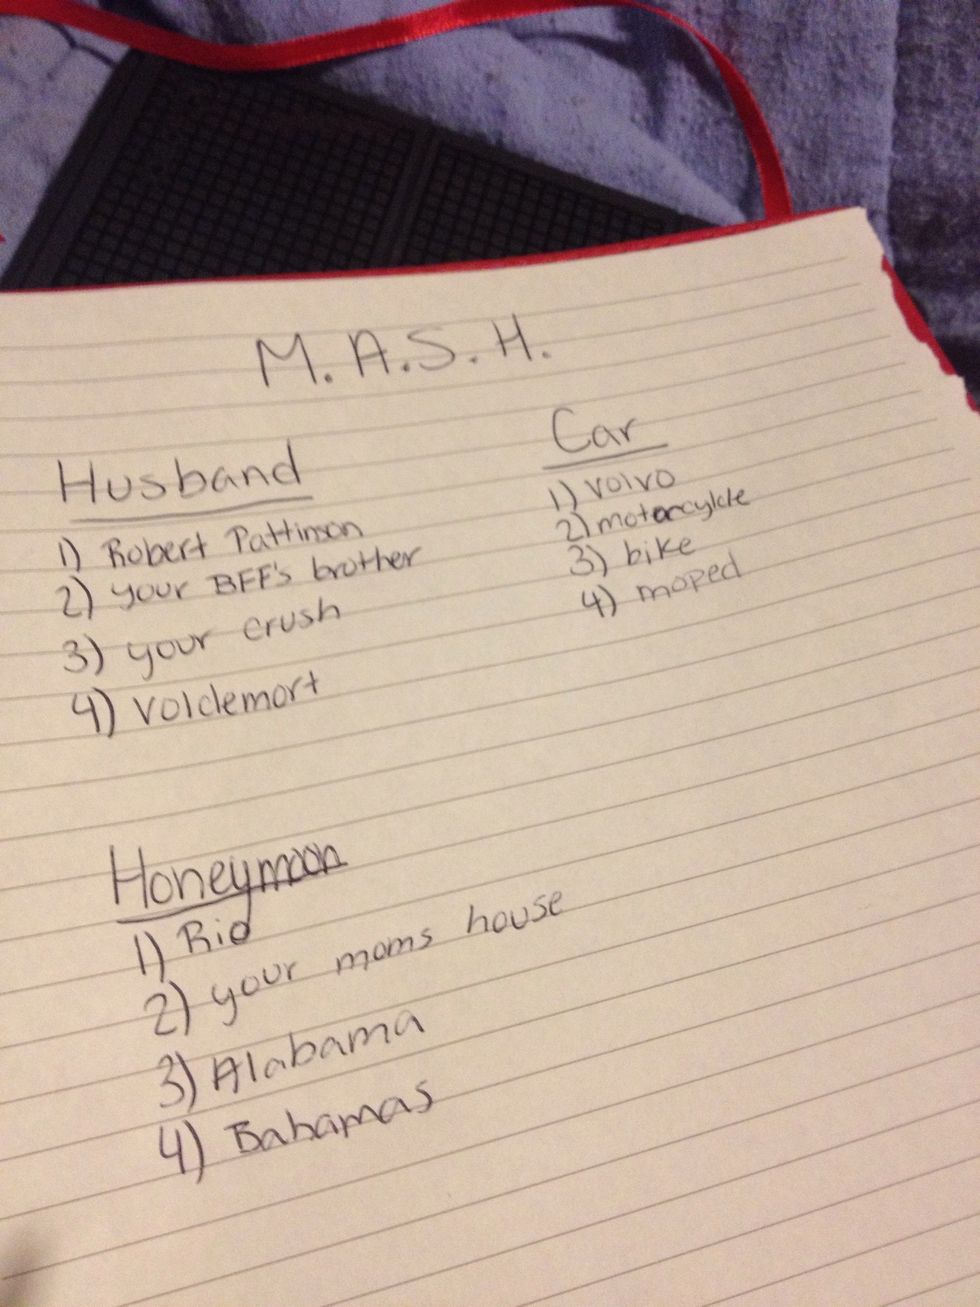 M.A.S.H.
Husband
1) Robert Pattinson
2) your BFF's brother
3) your crush
4) Voldemort
Car
1) Volvo
2) motorcylcle
3) bike
4) moped
Honeymoon
1) Rio
2) your moms house
3) Alabama
4) Bahamas